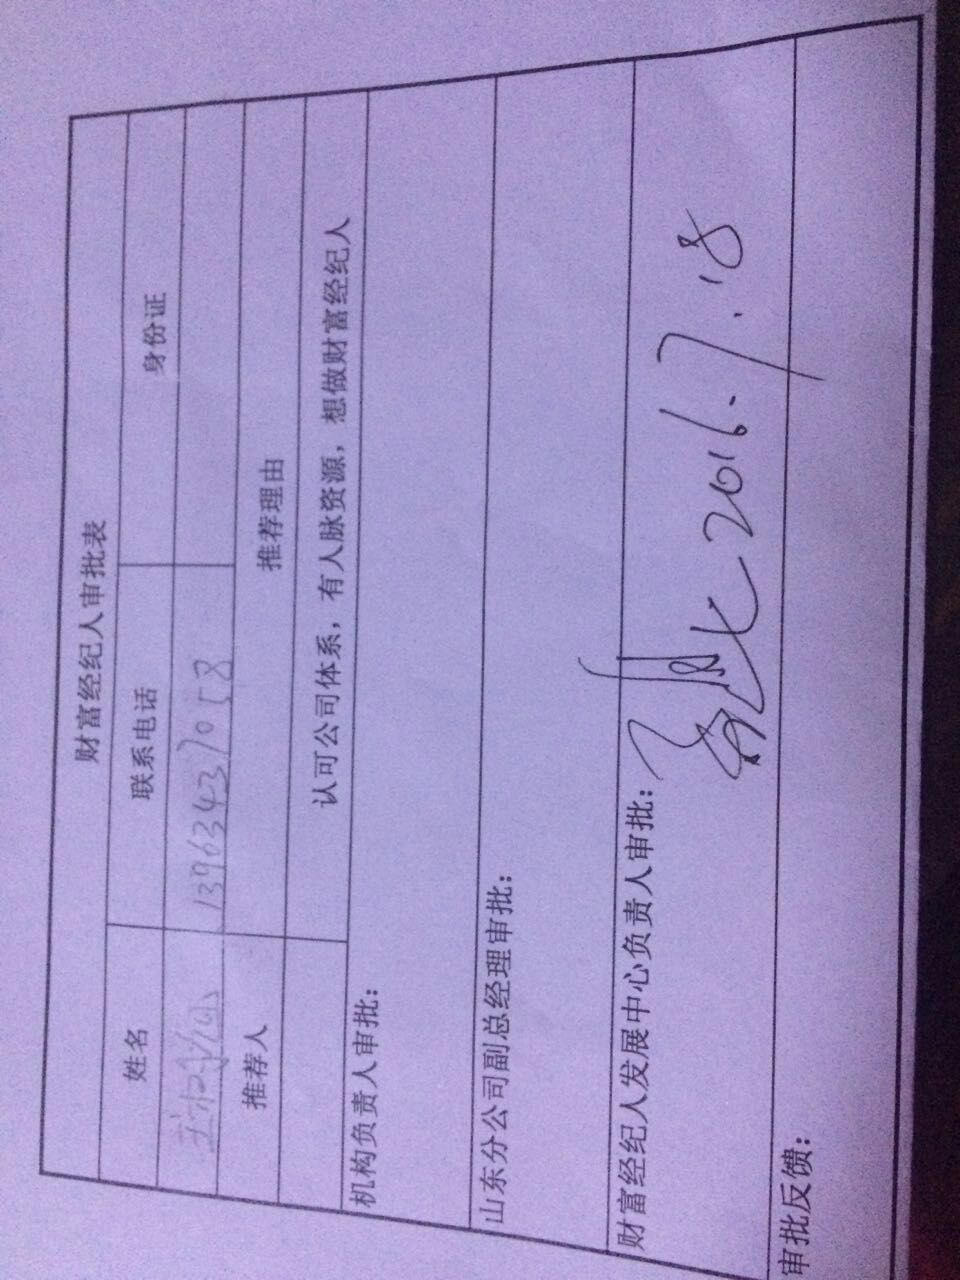 财富经纪人审批表
姓名 联系电话 身份证
13963437058
推荐人 推荐理由
认可公司体系，有人脉资源，想做财富经纪人
机构负责人审批：
山东分公司副总经理审批：
财富经纪人发展中心负责人审批：
2016.7.18
审批反馈：